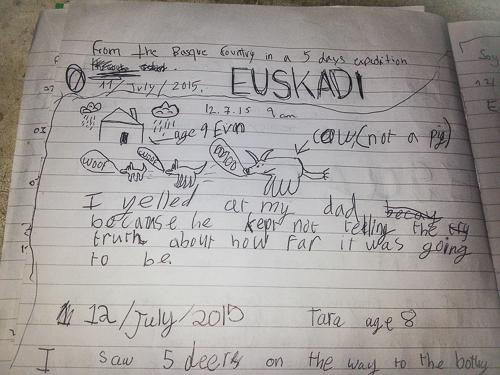 From the Basque Country in a 5 days expedition
11/July/2015.
EUSKADI
12.7.15 9am
age 9 Evan
cow, (not a pig)
woof
woof
mooo
I yelled at my dad
because he kept not telling the
truth about how far it was going
to be.
12/July/2015 Tara age 8
I saw 5 deers on the way to the bothy